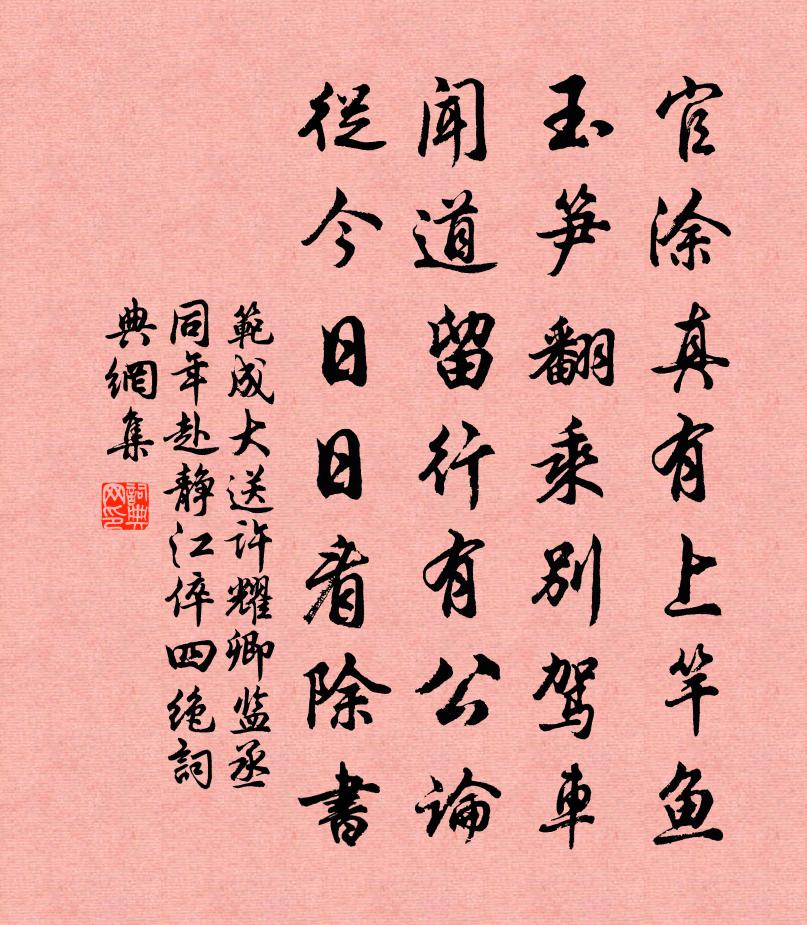 官涂真有上竿鱼
玉笋翻乘别驾車
闻道留行有公論
從今日日看除書
範成大送许耀卿监丞
同年赴静江倅四绝詞
典網集
詞典网印